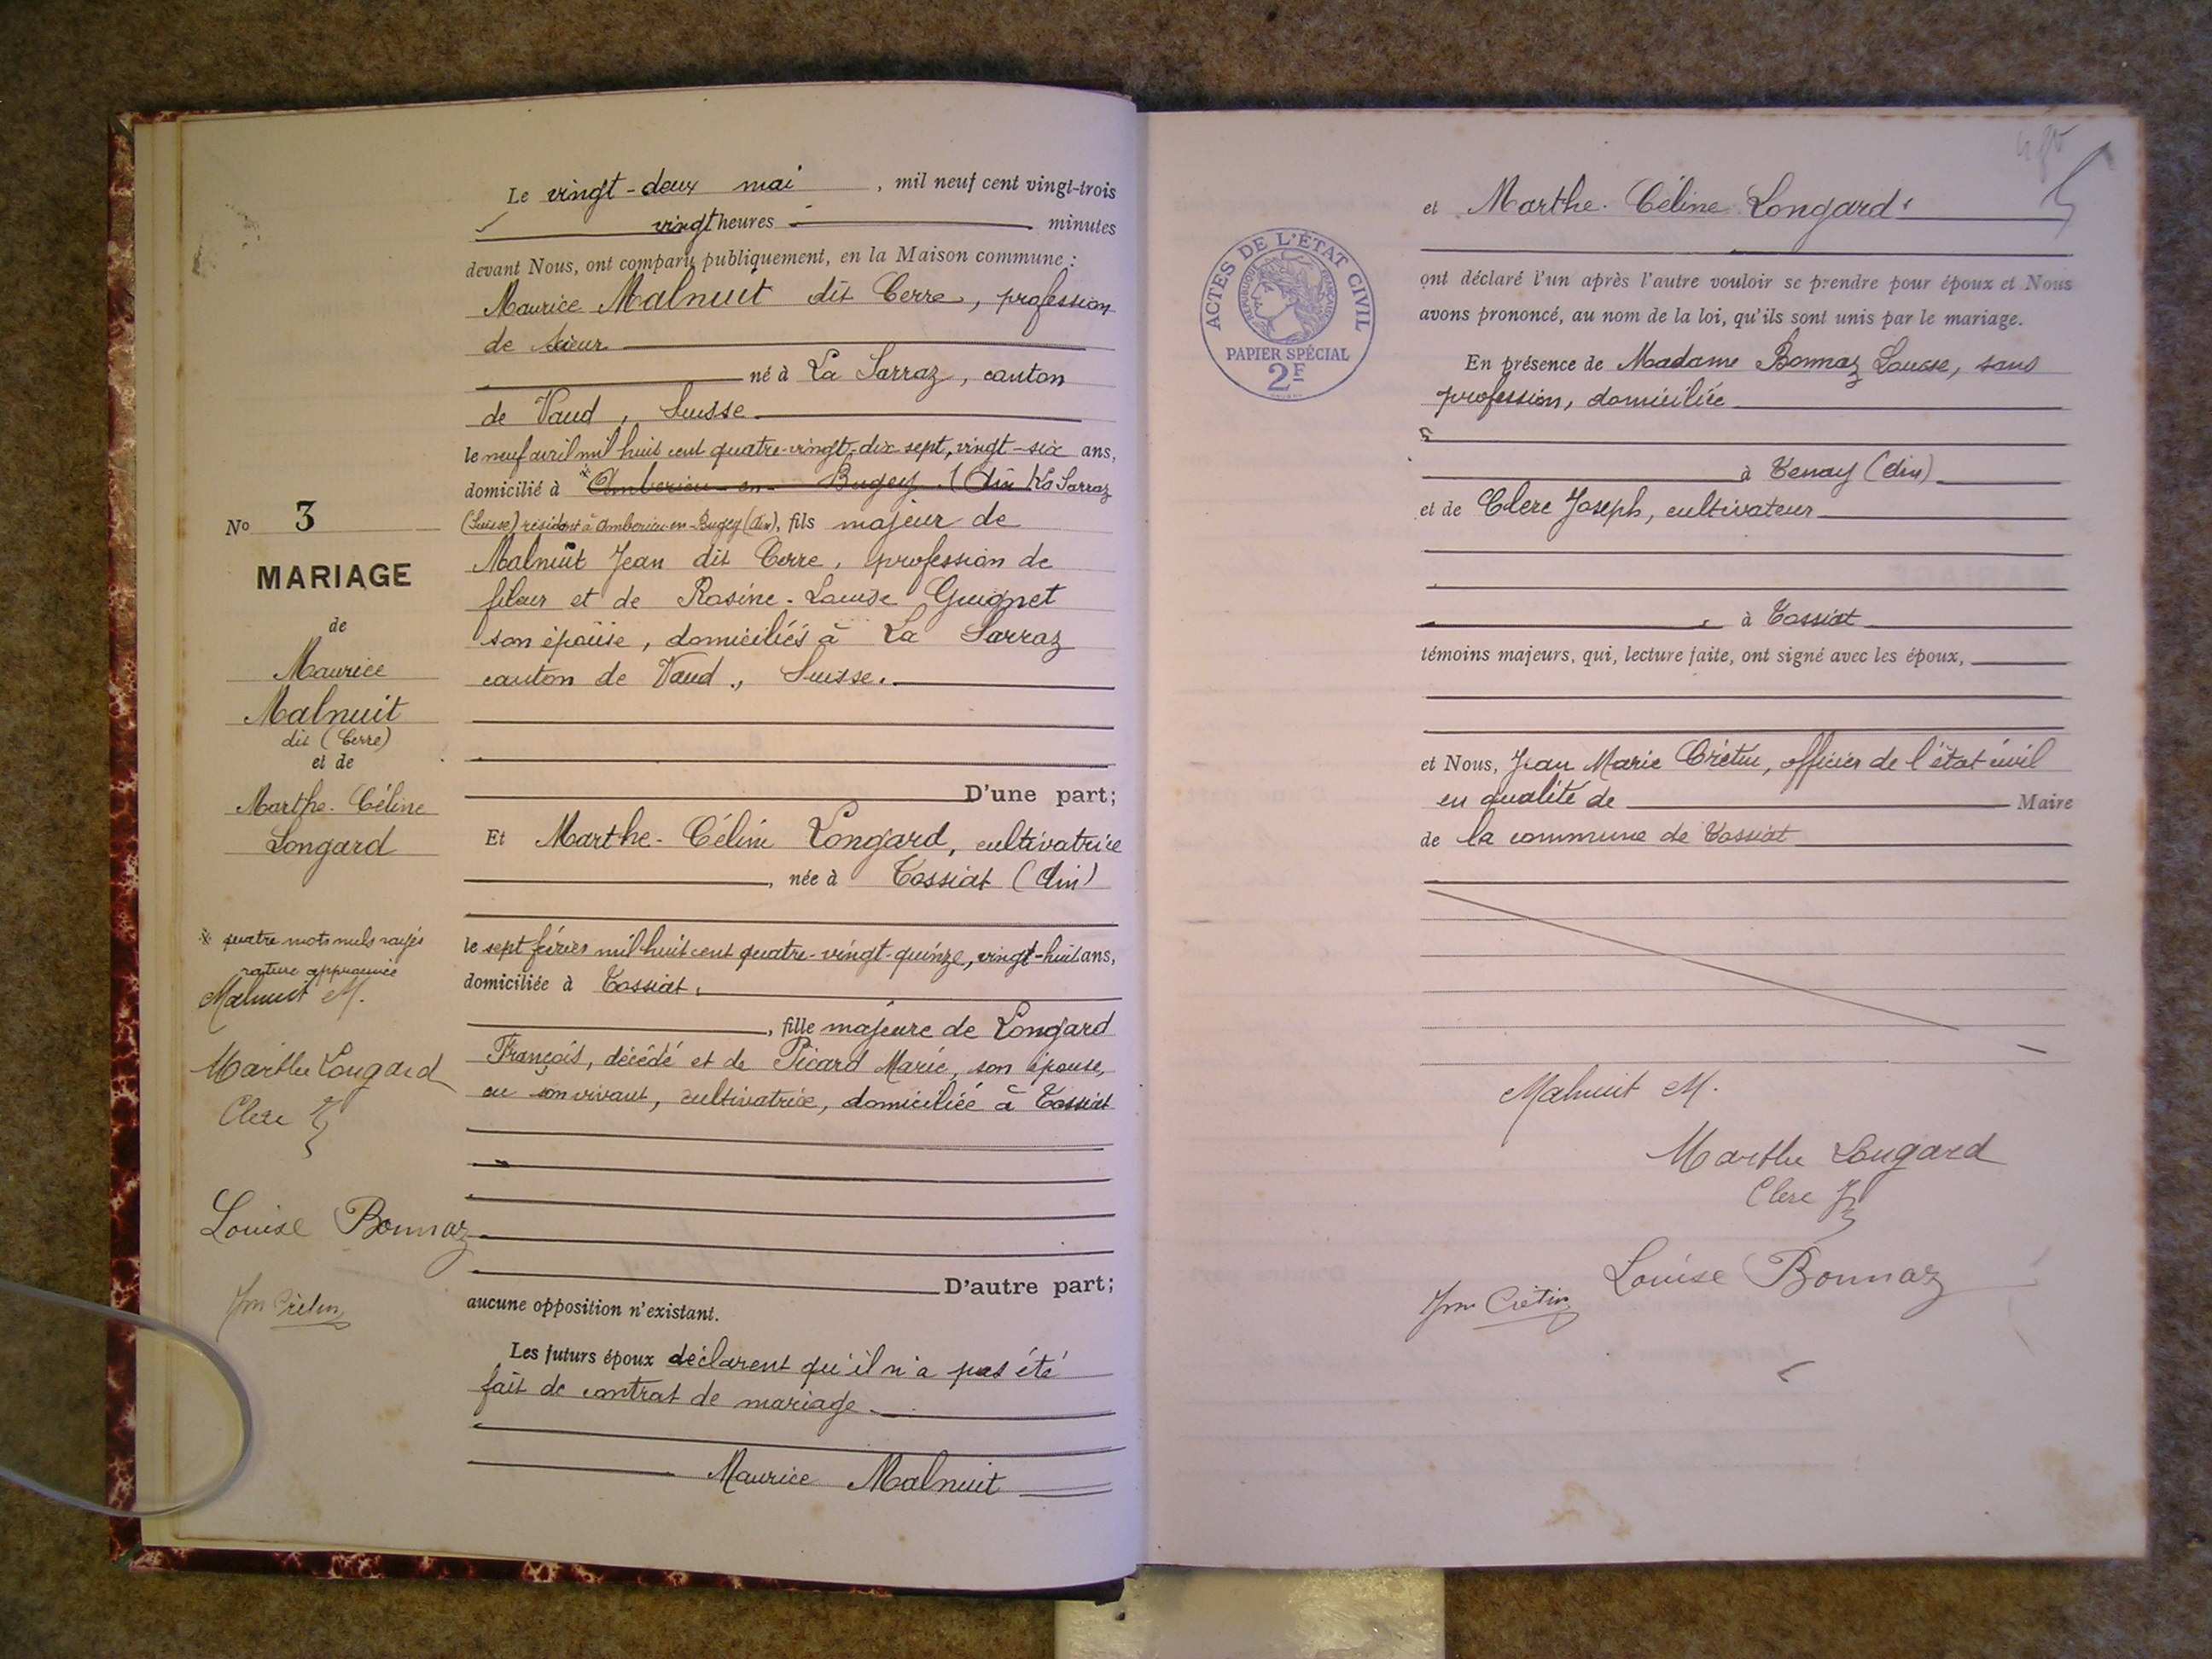 Le vingt-deux mai, mil neuf cent vingt-trois
vingt heures minutes
devant Nous, ont comparu publiquement, en la Maison commune :
Maurice Malnuit dit Cerre, profession
de scieur
né à La Sarraz, canton
de Vaud, Suisse
le neuf avril mil huit cent quatre-vingt-dix sept, vingt-six ans,
domicilié à * Amberieu-en-Bugey (Ain La Sarraz
(Suisse) résidant à Amberieu-en-Bugey (Ain), fils majeur de
Malnuit Jean dit Cerre, profession de
fileur et de Rosine-Louise Guignet
son épouse, domiciliés à La Sarraz
canton de Vaud, Suisse.
D'une part;
Et Marthe-Céline Longard, cultivatrice
, née à Tossiat (Ain)
le sept février mil huit cent quatre-vingt-quinze, vingt-huit ans,
domiciliée à Tossiat,
, fille majeure de Longard
François, décédé et de Picard Marie, son épouse,
en son vivant, cultivatrice, domiciliée à Tossiat
D'autre part;
aucune opposition n'existant.
Les futurs époux déclarent qu'il n'a pas été
fait de contrat de mariage
Maurice Malnuit
No 3
MARIAGE
de
Maurice
Malnuit
dit (Cerre)
et de
Marthe-Céline
Longard
* quatre mots nuls rayés
rature approuvée
Malnuit M.
Marthe Longard
Clerc J
Louise Bonnaz
Jm Crétin
ACTES DE L'ÉTAT CIVIL
RÉPUBLIQUE FRANÇAISE
PAPIER SPÉCIAL
2F
et Marthe-Céline Longard
ont déclaré l'un après l'autre vouloir se prendre pour époux et Nous
avons prononcé, au nom de la loi, qu'ils sont unis par le mariage.
En présence de Madame Bonnaz Louise, sans
profession, domiciliée
à Tenay (Ain)
et de Clerc Joseph, cultivateur
à Tossiat
témoins majeurs, qui, lecture faite, ont signé avec les époux,
et Nous, Jean Marie Crétin, officier de l'état civil
en qualité de Maire
de la commune de Tossiat
Malnuit M.
Marthe Longard
Clerc J
Louise Bonnaz
Jm Crétin